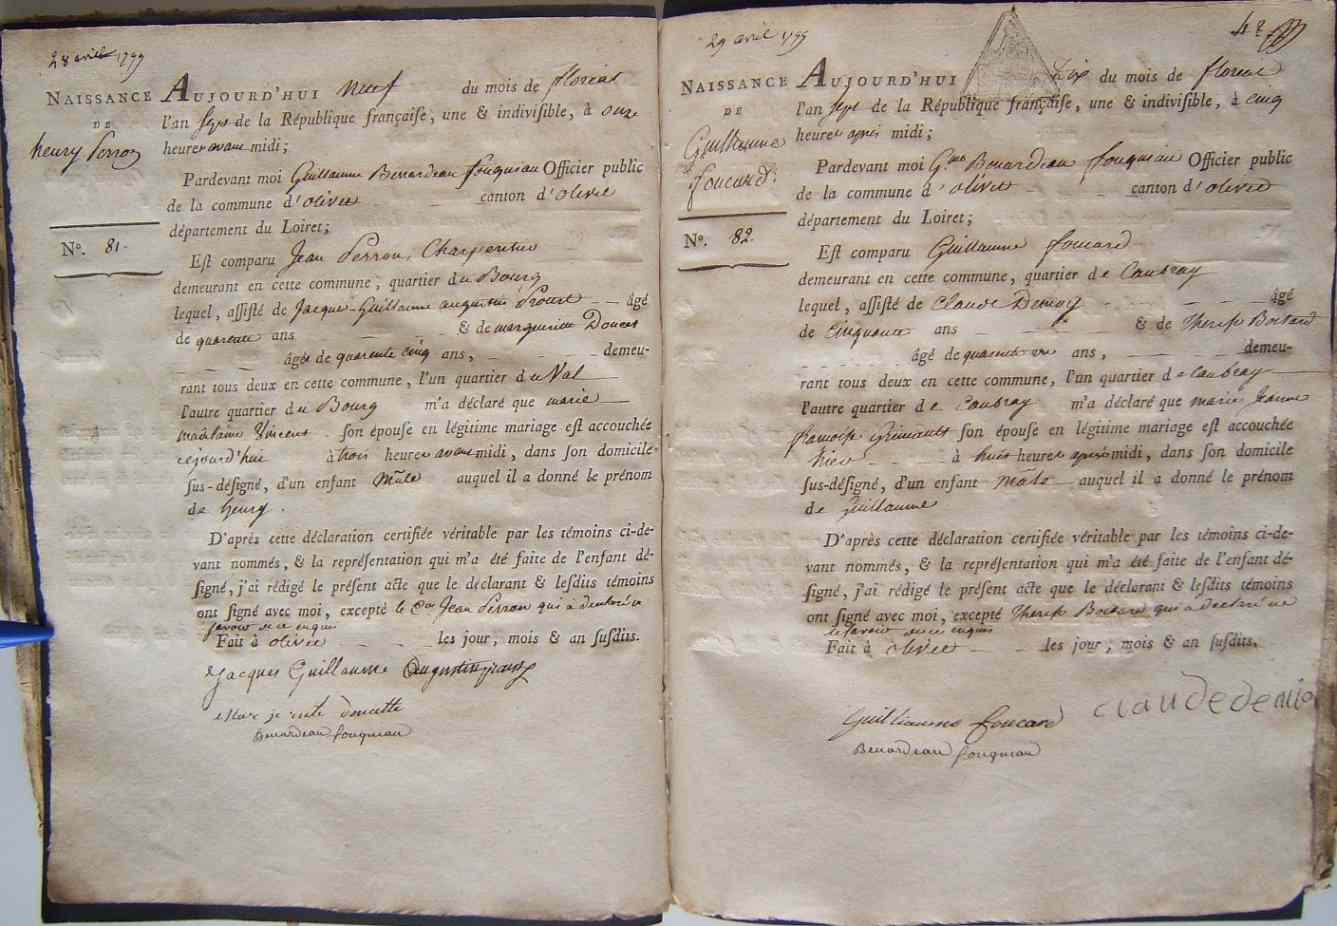 28 avril 1799
NAISSANCE
DE
henry Perron
N°. 81.
AUJOURD'HUI neuf du mois de floréal
l'an sept de la République françaiſe, une & indiviſible, à onze
heures avant midi;
Pardevant moi Guillaume Benardeau fouqueau Officier public
de la commune d'olivet canton d'olivet
département du Loiret;
Eſt comparu Jean Perron, Charpentier
demeurant en cette commune, quartier du Bourg
lequel, aſſiſté de Jacques-Guillaume augustin Proust âgé
de quarente ans & de marguerite Doucet
âgée de quarente cinq ans, demeu-
rant tous deux en cette commune, l'un quartier du Val
l'autre quartier du Bourg m'a déclaré que marie
madelaine Vincent ſon épouſe en légitime mariage eſt accouchée
cejourd'hui à trois heures avant midi, dans ſon domicile
ſus-déſigné, d'un enfant mâle auquel il a donné le prénom
de henry.
D'après cette déclaration certifiée véritable par les témoins ci-de-
vant nommés, & la repréſentation qui m'a été faite de l'enfant dé-
ſigné, j'ai rédigé le préſent acte que le déclarant & leſdits témoins
ont ſigné avec moi, excepté le Cen Jean Perron qui a declaré ne
ſavoir de ce enquis
Fait à olivet les jour, mois & an ſuſdits.
Jacques Guillaume Augustin proust
doucette
Benardeau fouqueau
29 avril 1799
42
NAISSANCE
DE
Guillaume
foucard
N°. 82.
AUJOURD'HUI Dix du mois de floréal
l'an sept de la République françaiſe, une & indiviſible, à cinq
heures après midi;
Pardevant moi Gme Benardeau fouqueau Officier public
de la commune d'olivet canton d'olivet
département du Loiret;
Eſt comparu Guillaume foucard
demeurant en cette commune, quartier de Caubray
lequel, aſſiſté de Claude Demoy âgé
de Cinquante ans & de Therese Boitard
âgé de quarente un ans, demeu-
rant tous deux en cette commune, l'un quartier de Caubray
l'autre quartier de Caubray m'a déclaré que marie Jeanne
françoise Grineault ſon épouſe en légitime mariage eſt accouchée
hier à huit heures après midi, dans ſon domicile
ſus-déſigné, d'un enfant mâle auquel il a donné le prénom
de Guillaume
D'après cette déclaration certifiée véritable par les témoins ci-de-
vant nommés, & la repréſentation qui m'a été faite de l'enfant dé-
ſigné, j'ai rédigé le préſent acte que le déclarant & leſdits témoins
ont ſigné avec moi, excepté Therese Boitard qui a declaré ne
le ſavoir de ce enquis
Fait à olivet les jour, mois & an ſuſdits.
claude demio
Guilliaume foucard
Benardeau fouqueau